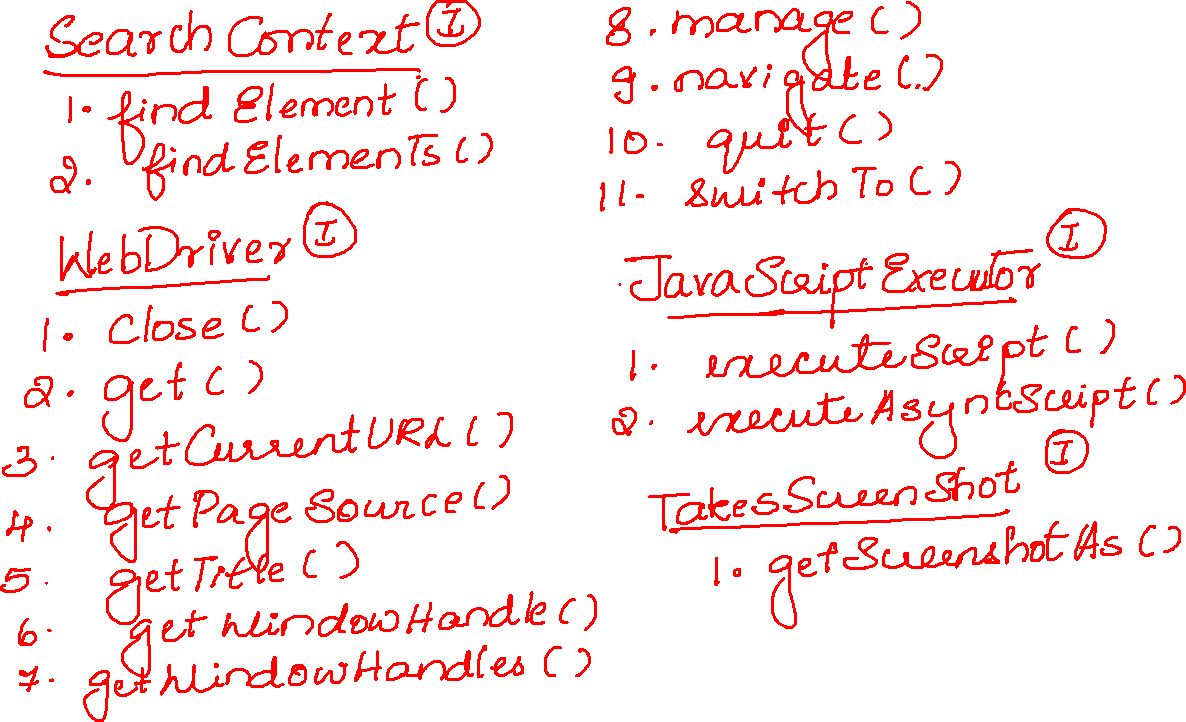 Search Context I
1. find Element ()
2. find ElemenTs ()
WebDriver I
1. Close ()
2. get ()
3. getCurrentURL ()
4. getPage Source ()
5. getTitle ()
6. getWindowHandle ()
7. getWindowHandles ()
8. manage ()
9. navigate ()
10. quit ()
11. SwitchTo ()
JavaScript Executor I
1. executeScript ()
2. executeAsyncScript ()
TakesScreenShot I
1. getScreenshotAs ()